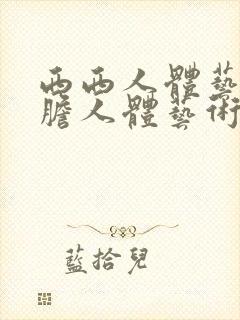 西西人體藝
膽人體藝術
藍拾兒